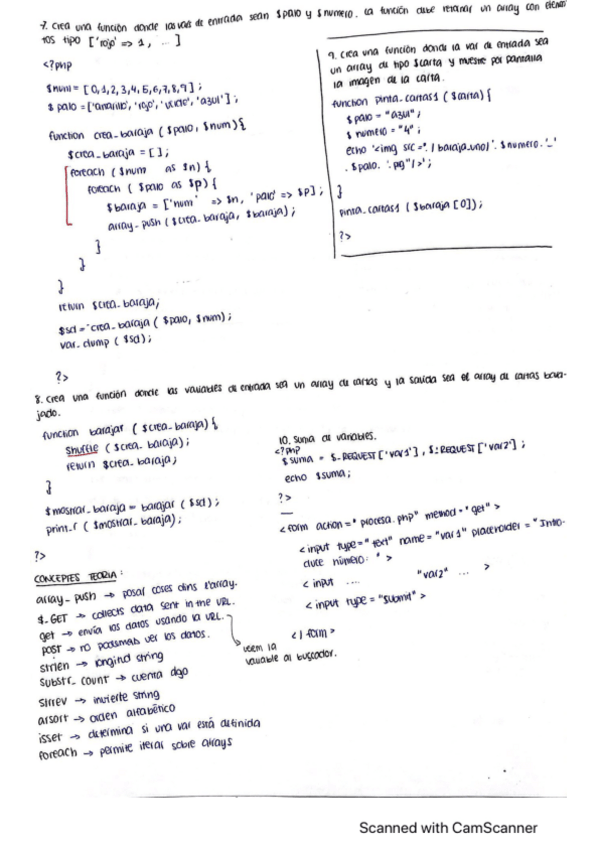 7. Crea una función donde las var de entrada sean $palo y $numero. La función debe retornar un array con elemen
tos tipo ['rojo' => 1, ... ]
<?php
$num = [0,1,2,3,4,5,6,7,8,9];
$palo = ['amarillo', 'rojo', 'verde', 'azul'];
function crea_baraja ($palo, $num){
$crea_baraja = [];
foreach ($num as $n) {
foreach ($palo as $p) {
$baraja = ['num' => $n, 'palo' => $p];
array_push ($crea_baraja, $baraja);
}
}
}
return $crea_baraja;
$sd = crea_baraja ($palo, $num);
var_dump ($sd);
?>
9. Crea una función donde la var de entrada sea
un array de tipo $carta y muestre por pantalla
la imagen de la carta.
function pinta_cartas1 ($carta) {
$palo = "azul";
$numero = "4";
echo '<img src="./baraja_uno/'.$numero.'_'
.$palo.'.jpg"/>';
}
pinta_cartas1 ($baraja [0]);
?>
8. Crea una función donde las variables de entrada sea un array de cartas y la salida sea el array de cartas bara-
jado.
function barajar ($crea_baraja) {
Shuffle ($crea_baraja);
return $crea_baraja;
}
$mostrar_baraja = barajar ($sd);
print_r ($mostrar_baraja);
?>
10. Suma de variables.
<?php
$suma = $_REQUEST ['var1'], $_REQUEST ['var2'];
echo $suma;
?>
—
<form action="procesa.php" method="get">
<input type="text" name="var1" placeholder="Intro-
duce número: ">
<input .... "var2" ... >
<input type="submit">
</form>
CONCEPTES TEORIA:
array_push → posar coses dins l'array.
$_GET → collects data sent in the URL.
get → envía los datos usando la URL.
veiem la
variable al buscador.
POST → no podemos ver los datos.
strlen → longind string
substr_count → cuenta algo
strrev → invierte string
arsort → orden alfabético
isset → determina si una var está definida
foreach → permite iterar sobre arrays
Scanned with CamScanner